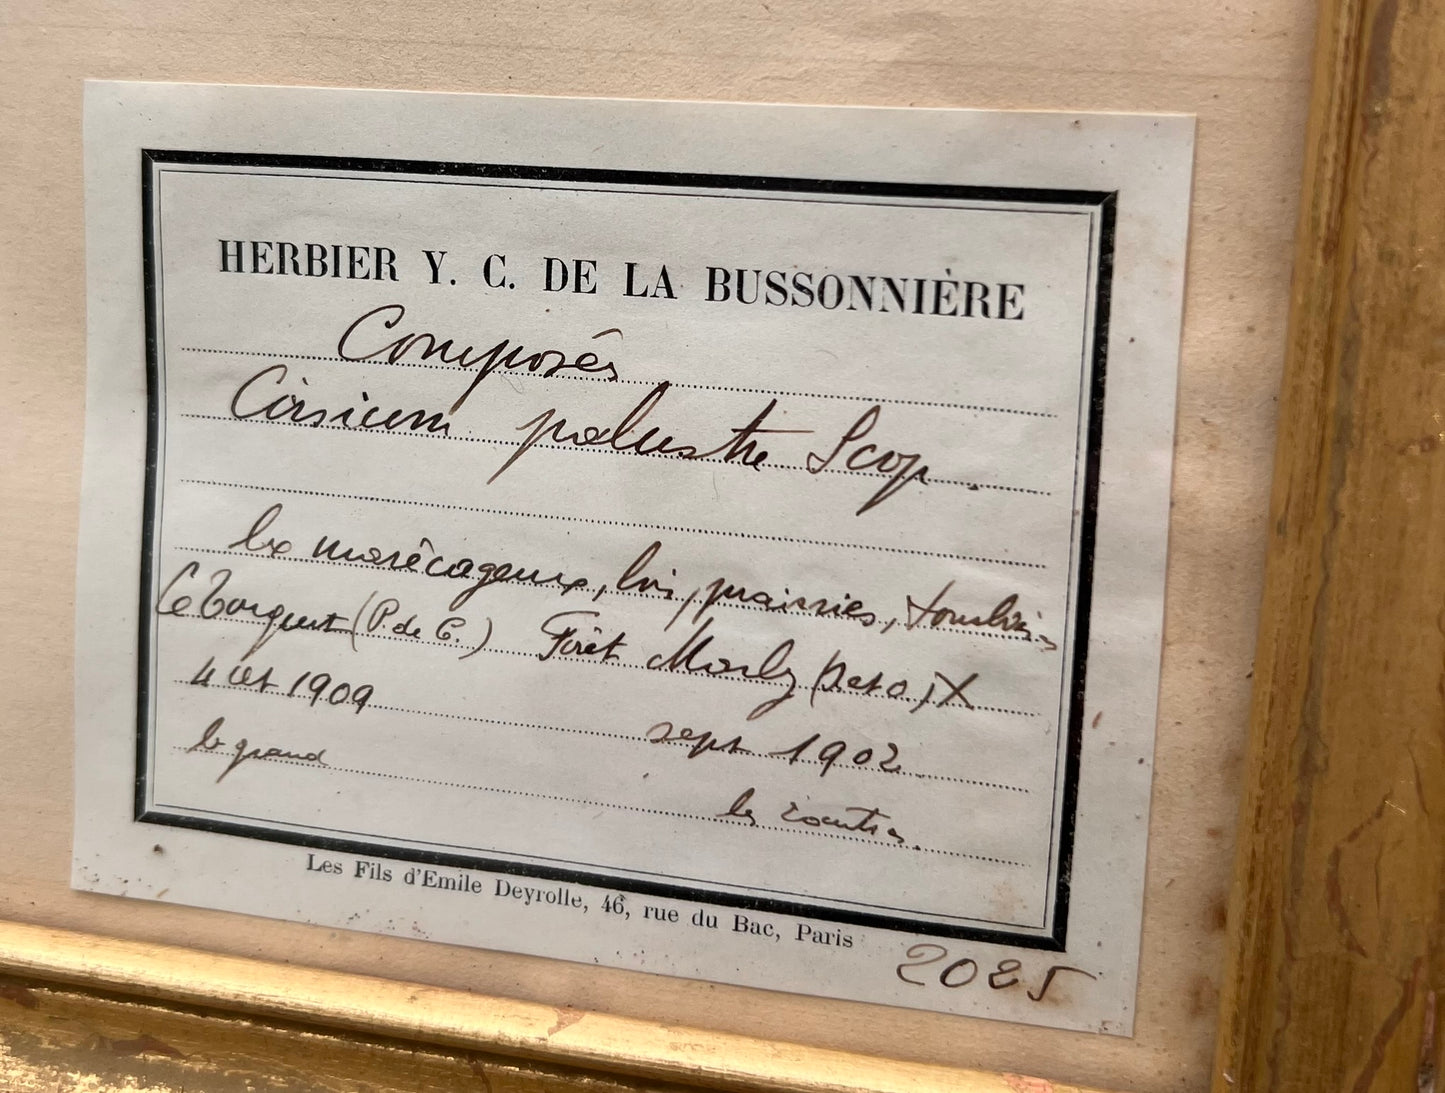 HERBIER Y. C. DE LA BUSSONNIÈRE
Composés
Cirsium palustre Scop.
lx marécageux, bois, prairies,
Le Torquet (P. de C.) Forêt Marly (S et O) X
4 oct 1909
sept 1902
le grand
les
Les Fils d'Emile Deyrolle, 46, rue du Bac, Paris
2025